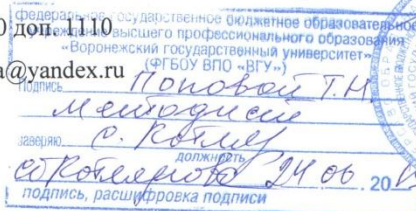 0 доп. 1110
a@yandex.ru
федеральное государственное бюджетное образовательное
учреждение высшего профессионального образования
«Воронежский государственный университет»
(ФГБОУ ВПО «ВГУ»)
Подпись Поповой Т.Н
заверяю
должность
24 06. 20
подпись, расшифровка подписи